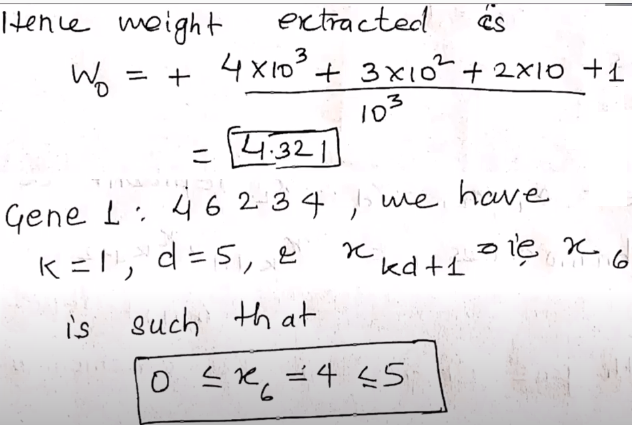 Hence weight extracted is
W₀ = + 4×10³ + 3×10² + 2×10 + 1
10³
= 4.321
Gene 1 : 46234, we have
k = 1, d = 5, & x kd+1 ie x₆
is such that
0 ≤ x₆ = 4 ≤ 5